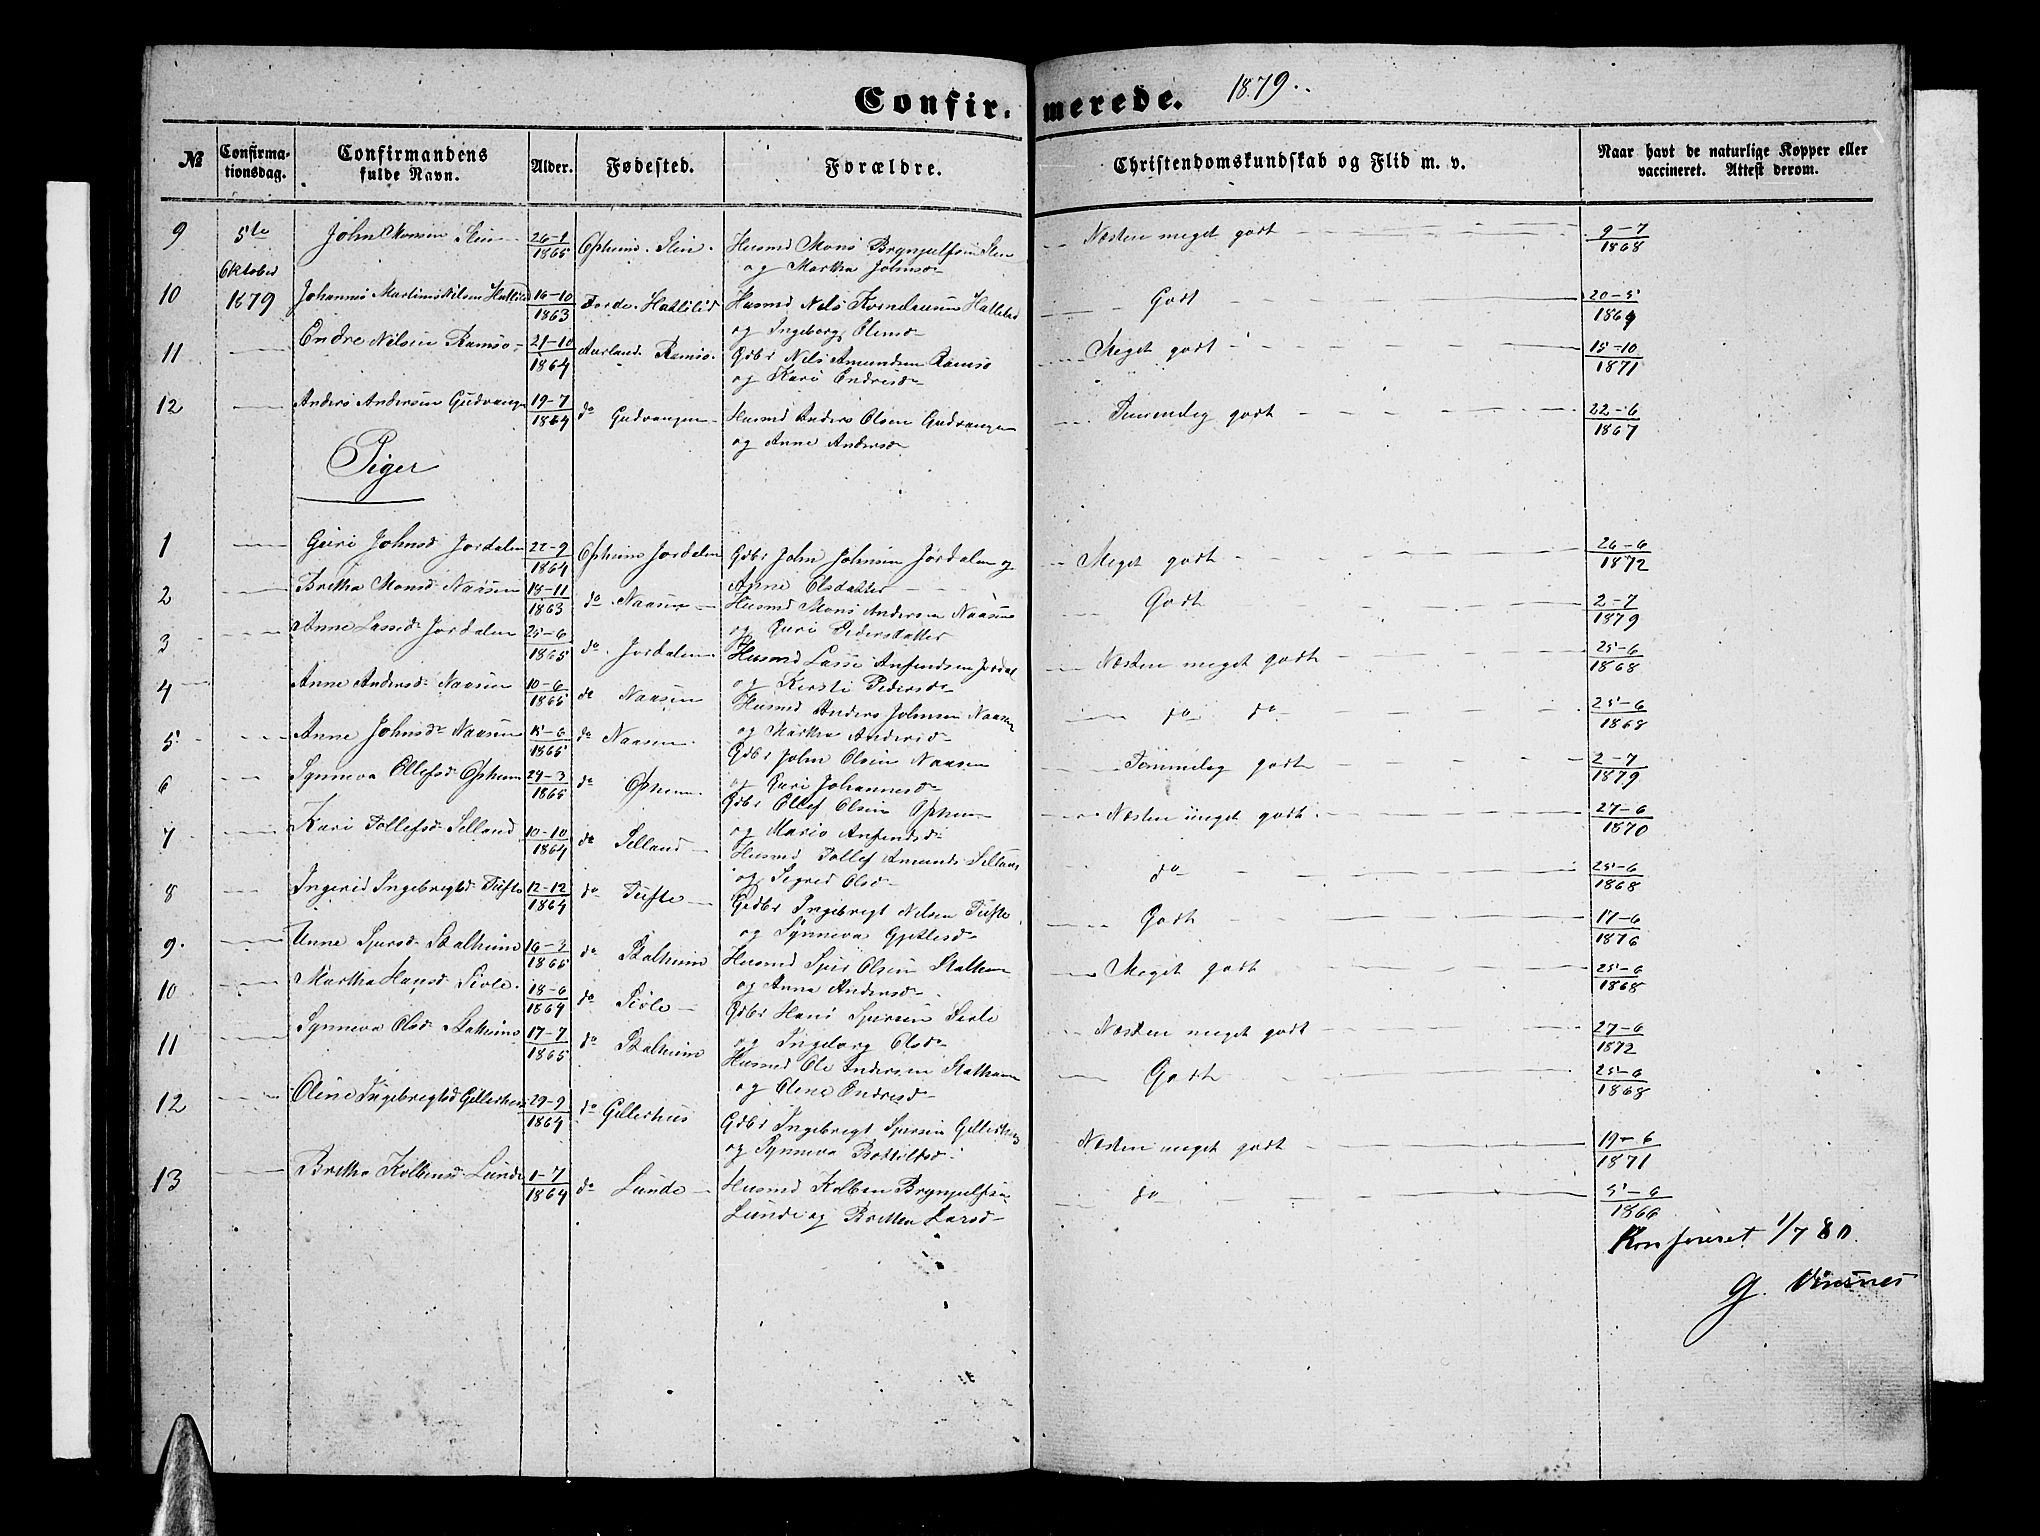 Confir. merede. 1879.
№ Confirma- tionsdag. Confirmandens fulde Navn. Alder. Fødested. Forældre. Christendomskundskab og Flid m. v. Naar havt de naturlige Kopper eller vaccineret. Attest derom.
9 5te John Monsen Sten 26-1 1865 Opheims Sten Husmd Mons Brynjulfsen Sten Næsten meget godt 9-7 1868
Oktober og Martha Johnsd
10 1879 Johannes Martinus Nilsen Hatlelid 16-10 1863 Førde Hatlelid Husmd Nels Hatlelid Godt 20-5 1864
og Ingeborg Olensd
11 Endre Nilsen Ramsø 21-10 1864 Aurland Ramsø Gdbr Nels Amundsen Ramsø Meget godt 15-10 1871
og Kari Endresd
12 Anders Andersen Gudvangen 19-7 1864 do Gudvangen Husmd Anders Olsen Gudvangen Temmelig godt 22-6 1867
og Anne Andersd
Piger
1 Guri Johnsd Jordalen 22-9 1864 Opheims Jordalen Gdbr John Johnsen Jordalen og Meget godt 26-6 1872
Anne Olsdatter
2 Britha Monsd Naasen 18-11 1863 do Naasen Husmd Mons Andersen Naasen Godt 2-7 1879
og Guri Pedersdatter
3 Anne Lassesd Jordalen 25-6 1865 do Jordalen Husmd Lasse Anfindsen Jordal Næsten meget godt 25-6 1868
og Kersti Pedersd
4 Anne Andersd Naasen 10-6 1865 do Naasen Husmd Anders Johnsen Naasen do do 25-6 1868
og Martha Andersd
5 Anne Johnsd Naasen 15-6 1865 do Naasen Gdbr John Olsen Naasen Temmelig godt 2-7 1879
og Guri Johannesd
6 Synneva Ollefsd Opheim 29-3 1865 do Opheim Gdbr Ollef Olsen Opheim Næsten meget godt 27-6 1870
og Maria Anfindsd
7 Kari Tollefsd Selland 10-10 1864 do Selland Husmd Tollef Amunds Selland do 25-6 1868
og Sigrid Olsd
8 Ingerid Ingebregtsd Tufte 12-12 1864 do Tufte Gdbr Ingebregt Nilsen Tufte Godt 17-6 1876
og Synneva Gjetlesd
9 Anne Spersd Stalheim 16-3 1865 do Stalheim Husmd Sper Olsen Stalheim Meget godt 25-6 1868
og Anna Andersd
10 Martha Hansd Sivle 18-6 1864 do Sivle Gdbr Hans Spersen Sivle Næsten meget godt 27-6 1872
og Ingeborg Olsd
11 Synneva Olsd Stalheim 17-7 1865 do Stalheim Husmd Ole Andersen Stalheim Godt 25-6 1868
og Olena Endresd
12 Oline Ingebregtsd Gillerhus 29-9 1864 do Gillerhus Gdbr Ingebregt Spersen Gillerhus Næsten meget godt 19-6 1871
og Synneva Bottilfsd
13 Britha Kolbensd Lunde 1-7 1864 do Lunde Husmd Kolben Brynjulfsen do 5-6 1866
Lunde og Britha Larsd
Konfereret 1/7 80.
G.